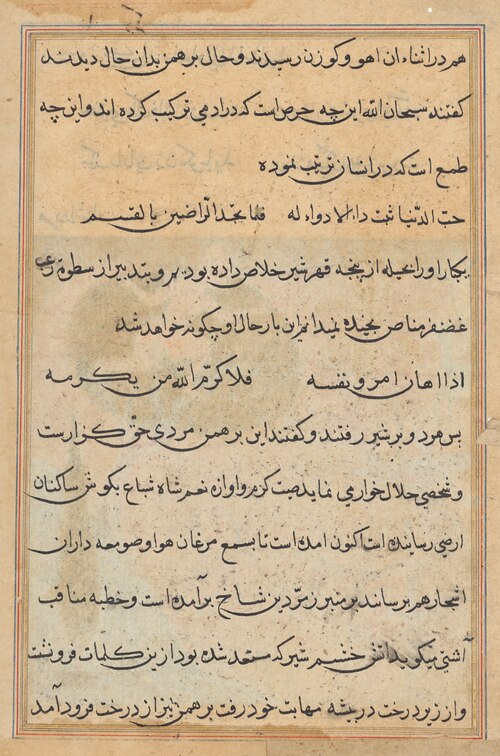 هم در اثناء ان اهو و کوزن رسیدند و حال برهمن بدان حال دیدند
کفتند سبحان الله این چه حرص است که در ادمی ترکیب کرده اند و این چه
طمع است که در انسان ترتیب نموده
حبّ الدّنیا شت داء لا دواء له فلما نجد الّا راضین بالقسم
یکبار او را بحیله از پنجه قهر شیر خلاص داده بودیم و بتدبیر از سطوة رعب
غضنفر مناص بخیده نمیدانم این بار حال او چکونه خواهد شد
اذا اهان امرو نفسه فلا کرّم الله من یکرمه
پس هر دو بر شیر رفتند و کفتند این برهمن مردی حقّ کزارست
و شخصی حلال خوار می نماید صیت کرم و اوازه نعم شاه شباع بکوش ساکنان
ارضی رسانیده است اکنون امده است تا بسمع مرغان هوا و صومعه داران
اشجار هم برساند بر منبر زمرّدین شاخ برآمده است و خطبه مناقب
آشتی میکوید اتش خشم شیر که مستعد شده بود ازین کلمات فرو نشت
و از زیر درخت در بیشه مهابت خود رفت برهمن نیز از درخت فرود آمد